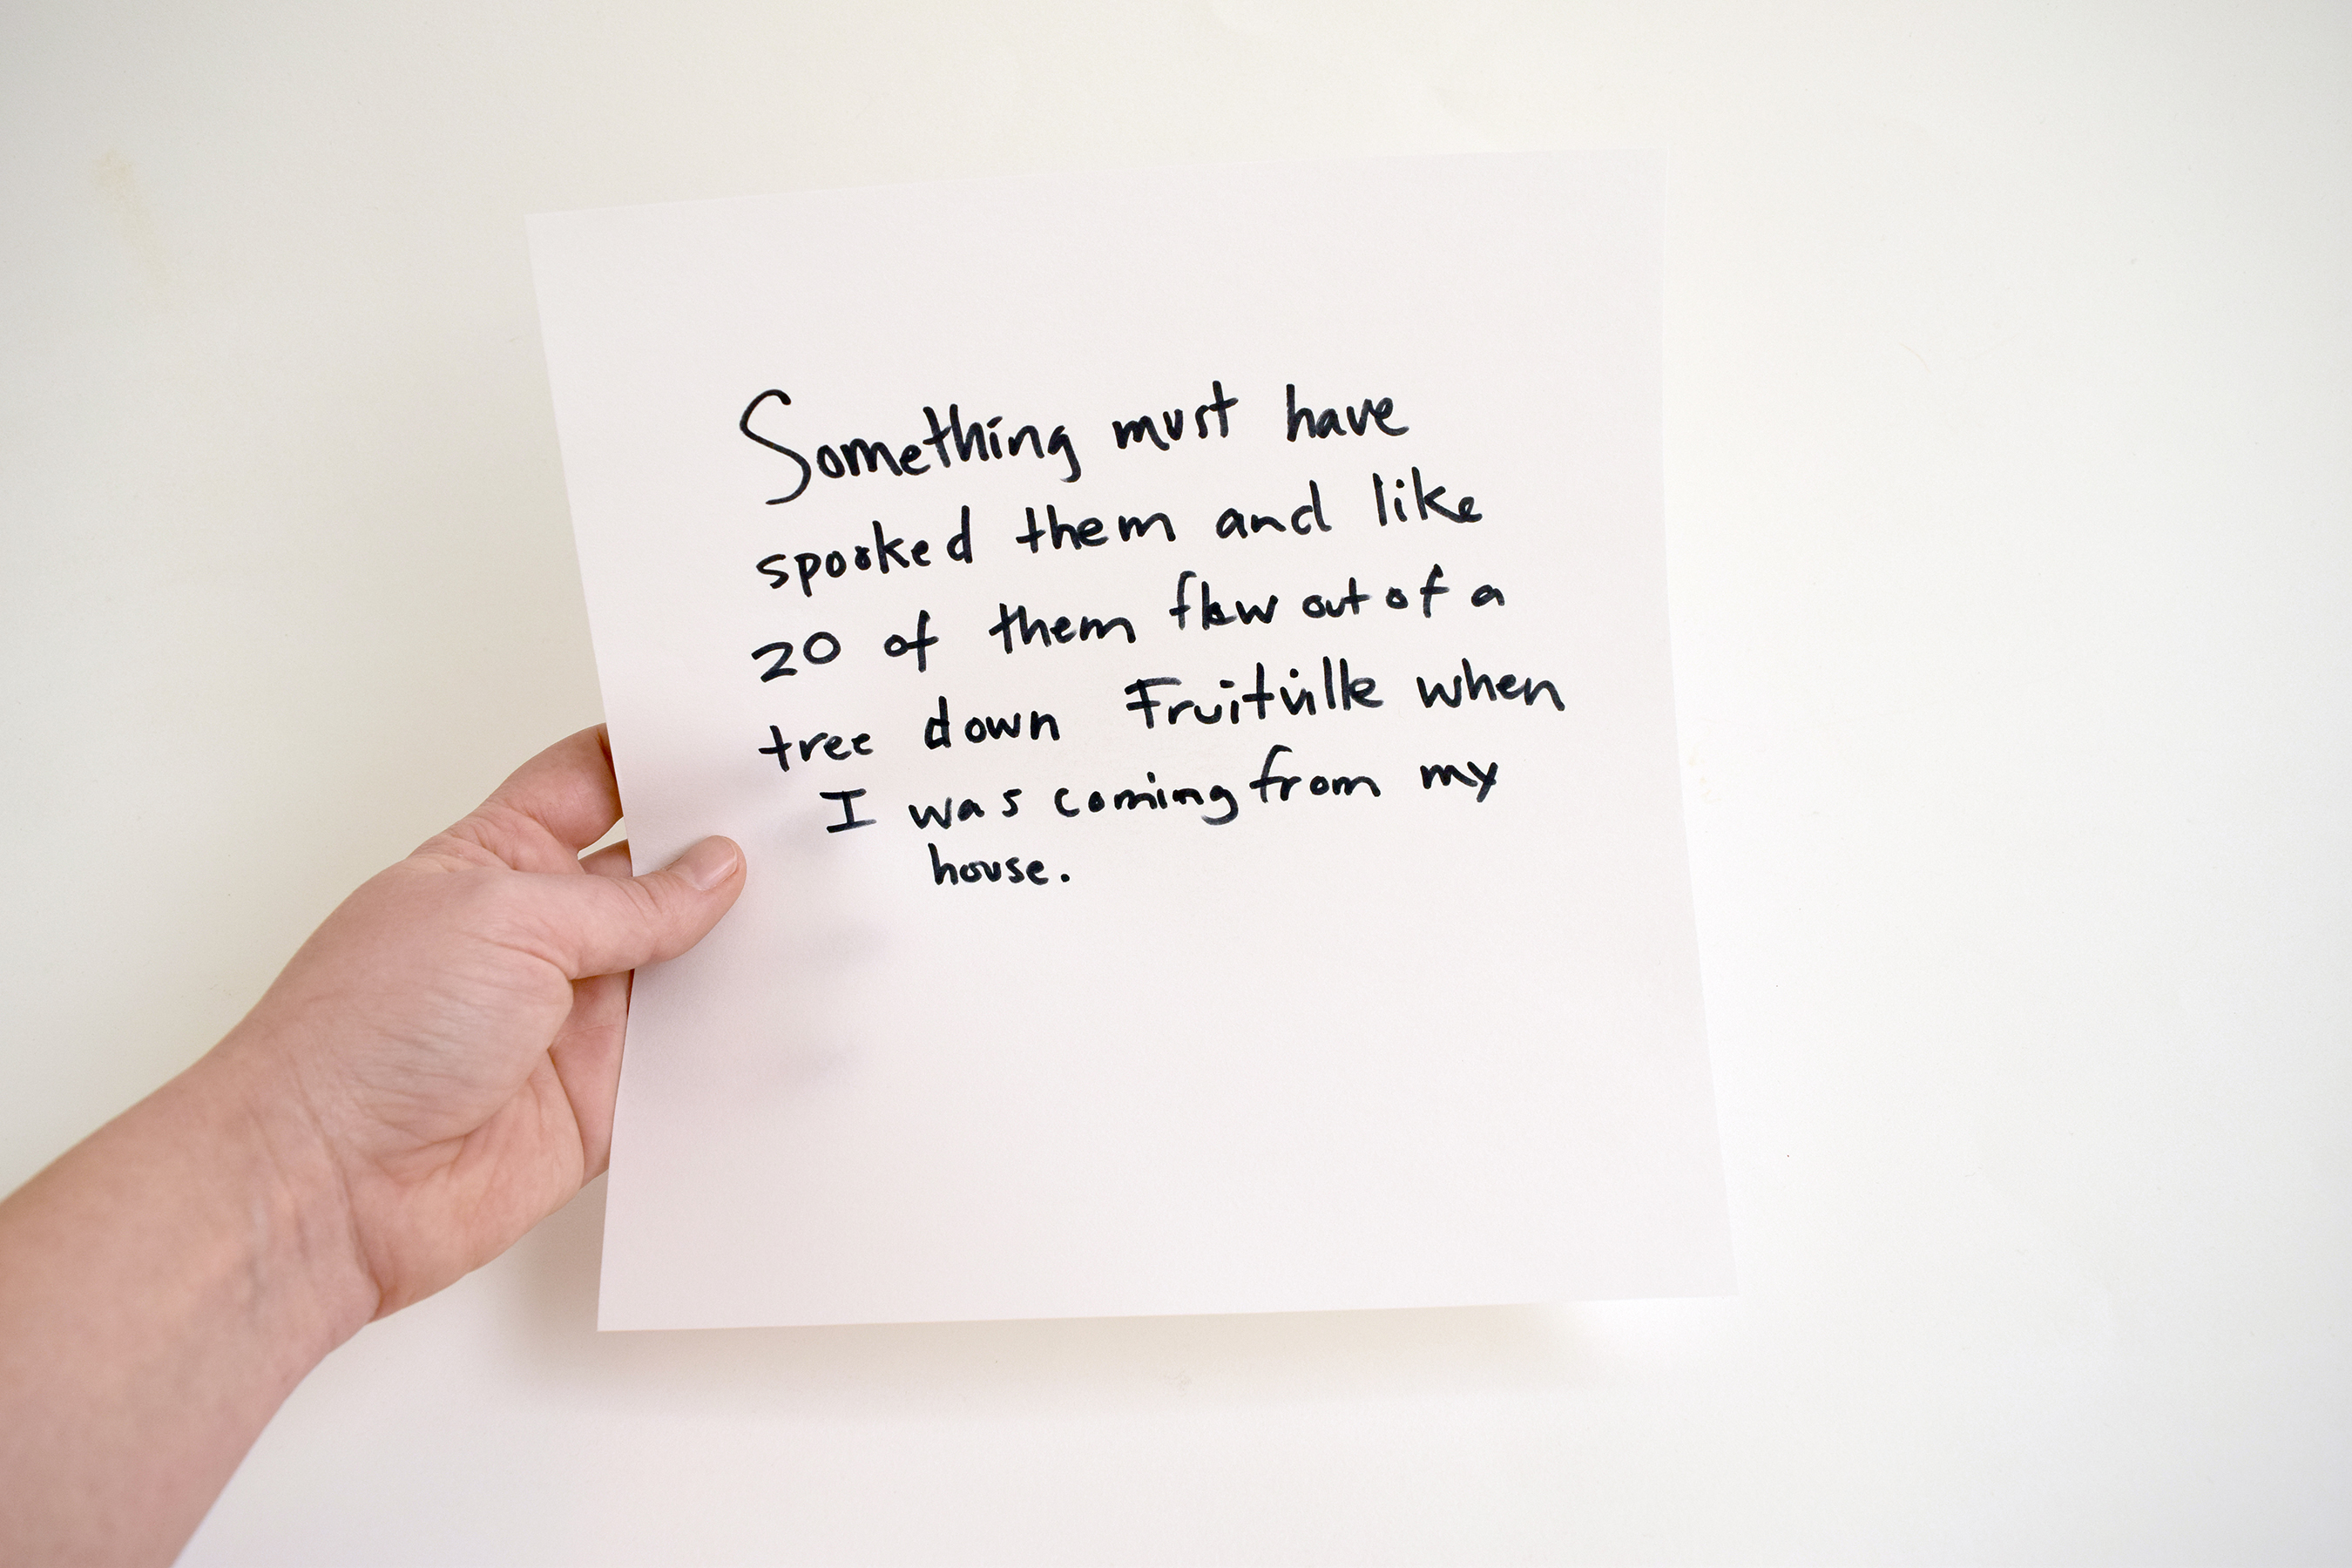 Something must have
spooked them and like
20 of them flew out of a
tree down Fruitville when
I was coming from my
house.